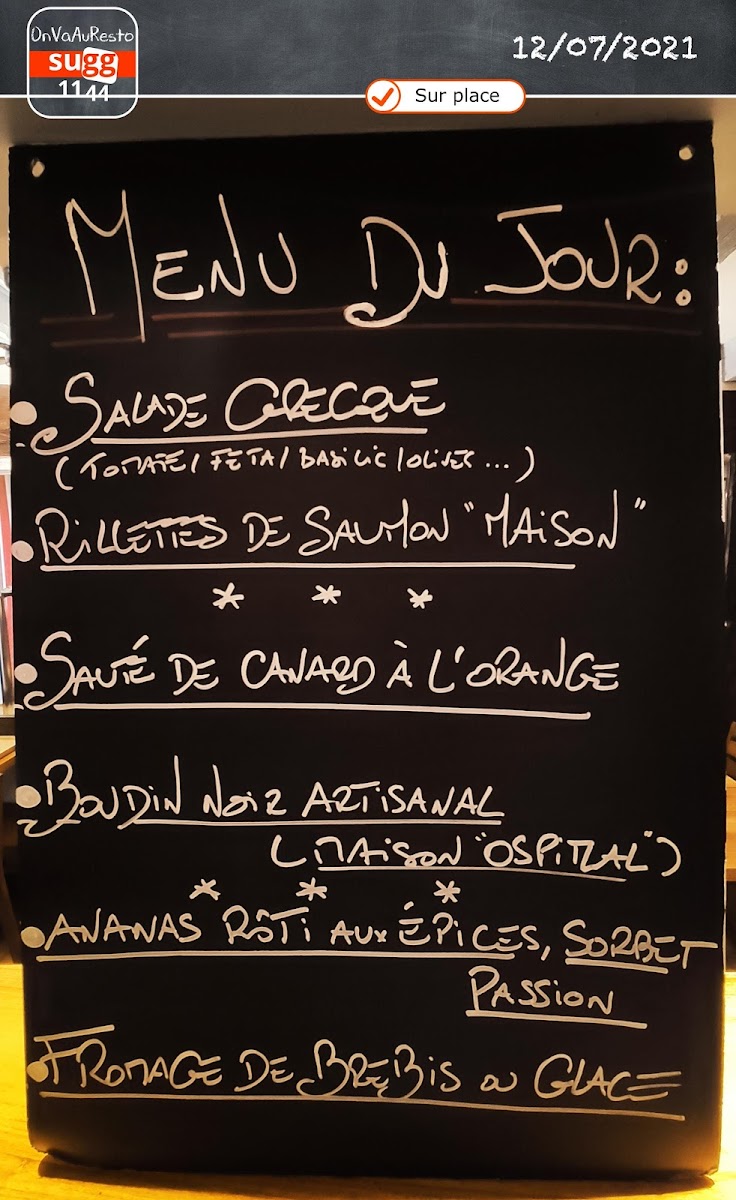 OnVaAuResto
sugg
1144
12/07/2021
Sur place
MENU DU JOUR:
SALADE GRECQUE
(TOMATE/FETA/BASILIC/OLIVES...)
RILLETTES DE SAUMON "MAISON"
* * *
SAUTÉ DE CANARD À L'ORANGE
BOUDIN NOIR ARTISANAL
(MAISON "OSPITAL")
* * *
ANANAS RÔTI AUX ÉPICES, SORBET
PASSION
FROMAGE DE BREBIS OU GLACE